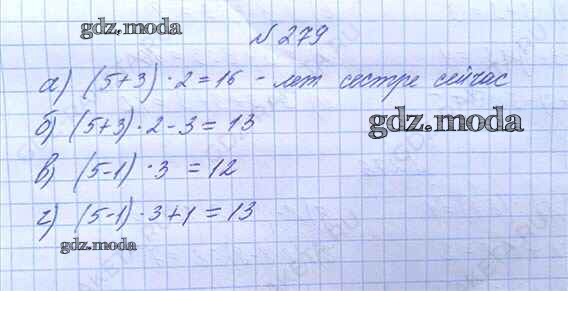 gdz.moda
N 279
а) (5+3) · 2 = 16 - лет сестре сейчас
б) (5+3) · 2 - 3 = 13
gdz.moda
в) (5-1) · 3 = 12
г) (5-1) · 3 + 1 = 13
gdz.moda